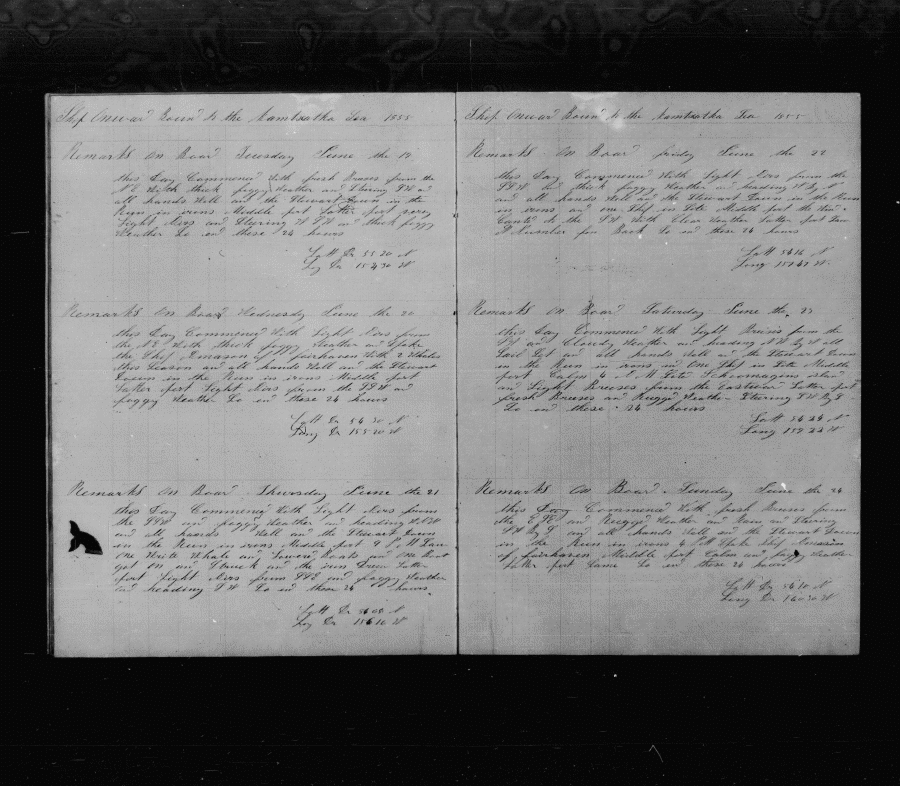 Ship Onward Bound to the Kamtsatka Sea 1855
Remarks On Board Tuesday June the 19
this Day Commencd With fresh Breses from the
N E With thick foggy Weather and Stering S W
all hands Well and the Stewart Down in the
Run in irons Middle port Latter port very
Light Airs and Stering W and thick foggy
Weather So end these 24 hours
Latt Dr 55 20 N
Log Dr 154 30 W
Remarks On Board Wednesday June the 20
this Day Commencd With Light Airs from
the N E With thick foggy Weather and Spoke
the Ship of fairhaven With 2 Whales
this Season and all hands Well and the Stewart
Down in the Run in irons Middle port
Later port Light Airs from the SSW and
foggy Weather So end these 24 hours
Latt Dr 54 30 N
Long Dr 155 20 W
Remarks On Board Thursday June the 21
this Day Commencd With Light Airs from
the SSW and foggy Weather and heading
and all hands Well and the Stewart Down
in the Run in irons Middle Port P M
One Write Whale and Lowerd Boats and one Boat
got on and Struck and the iron Drew Latter
port Light Airs from and foggy Weather
and heading S W So end these 24 hours
Latt Dr
Log Dr 156 10 W
Ship Onward Bound to the Kamtsatka Sea 1855
Remarks On Board friday June the 22
this Day Commencd With Light Airs from the
thick foggy Weather and heading W by N
and all hands Well and the Stewart Down in the Run
in irons and one Ship in Site Middle port the Wind
to the With Clear Weather Latter port
So end these 24 hours
Latt 54 16 N
Long 157 47 W
Remarks On Board Saturday June the 23
this Day Commencd With Light Breses from the
and Cloudy Weather and heading by W all
Sail Set and all hands Well and the Stewart Down
in the Run in irons and One Ship in Site Middle
port Calm 4 A M Site
in Light Breeses from the Eastward Latter port
fresh Breeses and Ruggd Weather Stering S W By S
So end these 24 hours
Latt 54 24 N
Long 159 22 W
Remarks On Board Sunday June the 24
this Day Commencd With fresh Breses from
the and Ruggd Weather and Rain and Stering
and all hands Well and the Stewart Down
in the Run in irons 4 P M Spoke Ship
of fairhaven Middle port Calm and foggy Weather
Latter port Same So end these 24 hours
Latt Dr 54 10 N
Long Dr 160 30 W